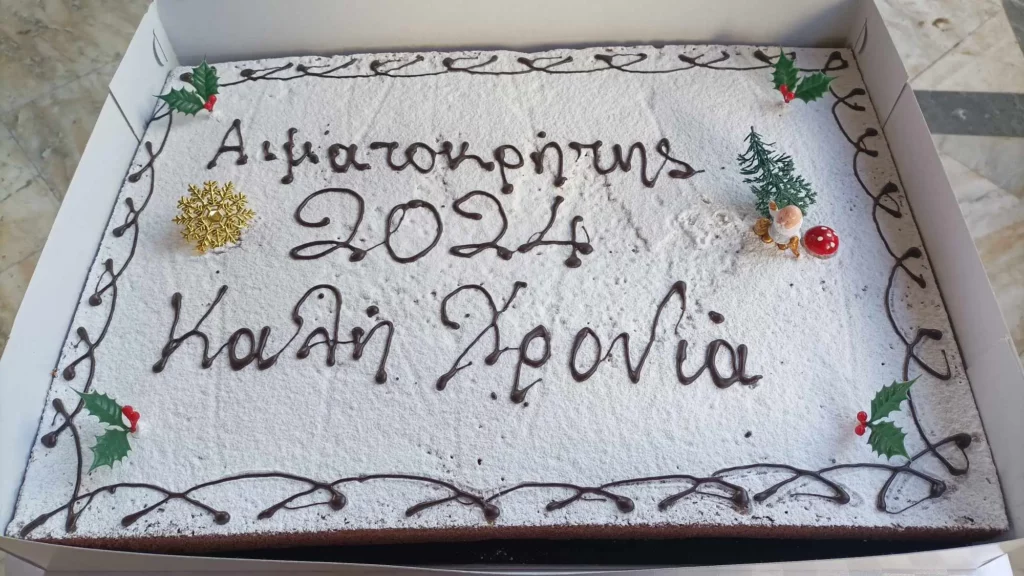 Αιματοκρήτης
2024
Καλή Χρονιά